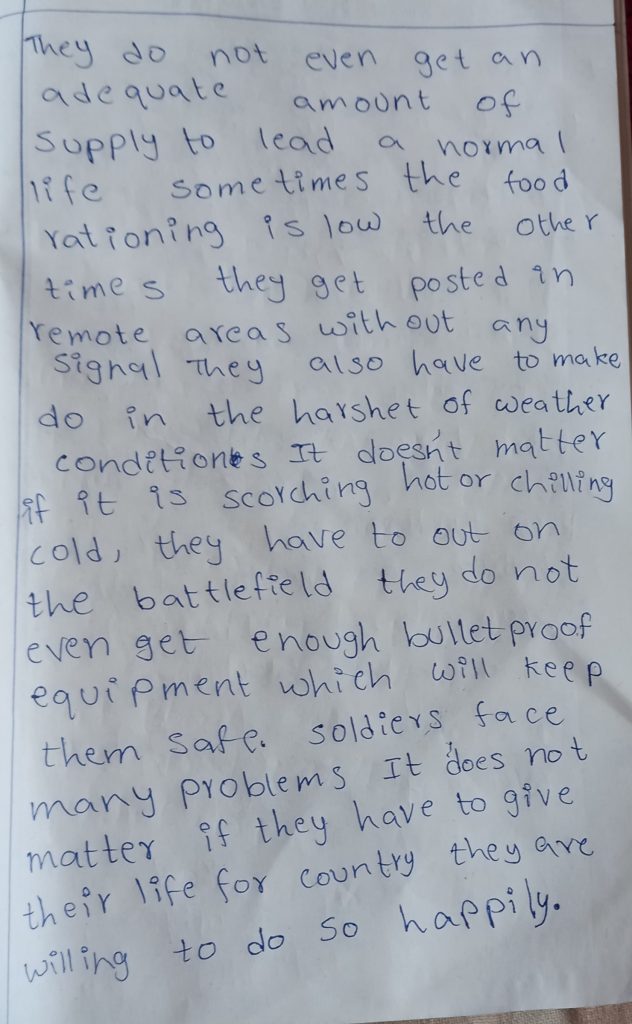 They do not even get an
adequate amount of
supply to lead a normal
life sometimes the food
rationing is low the other
times they get posted in
remote areas without any
signal They also have to make
do in the harshet of weather
conditions It doesn't matter
if it is scorching hot or chilling
cold, they have to out on
the battlefield they do not
even get enough bulletproof
equipment which will keep
them safe. soldiers face
many problems It does not
matter if they have to give
their life for country they are
willing to do so happily.